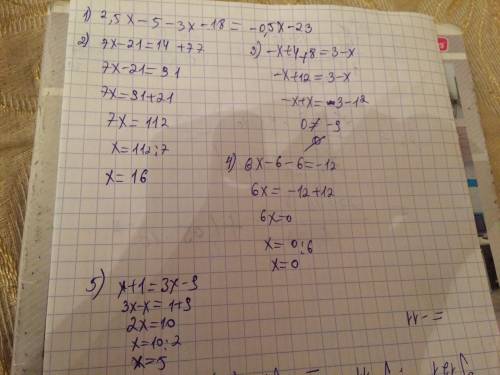 1) 2,5x-5-3x-18 = -0,5x-23
2) 7x-21=14+77
7x-21=91
7x=91+21
7x=112
x=112:7
x=16
3) -x+4+8=3-x
-x+12=3-x
-x+x=3-12
0≠-9
4) 6x-6-6=-12
6x=-12+12
6x=0
x=0:6
x=0
5) x+1=3x-9
3x-x=1+9
2x=10
x=10:2
x=5
=-11